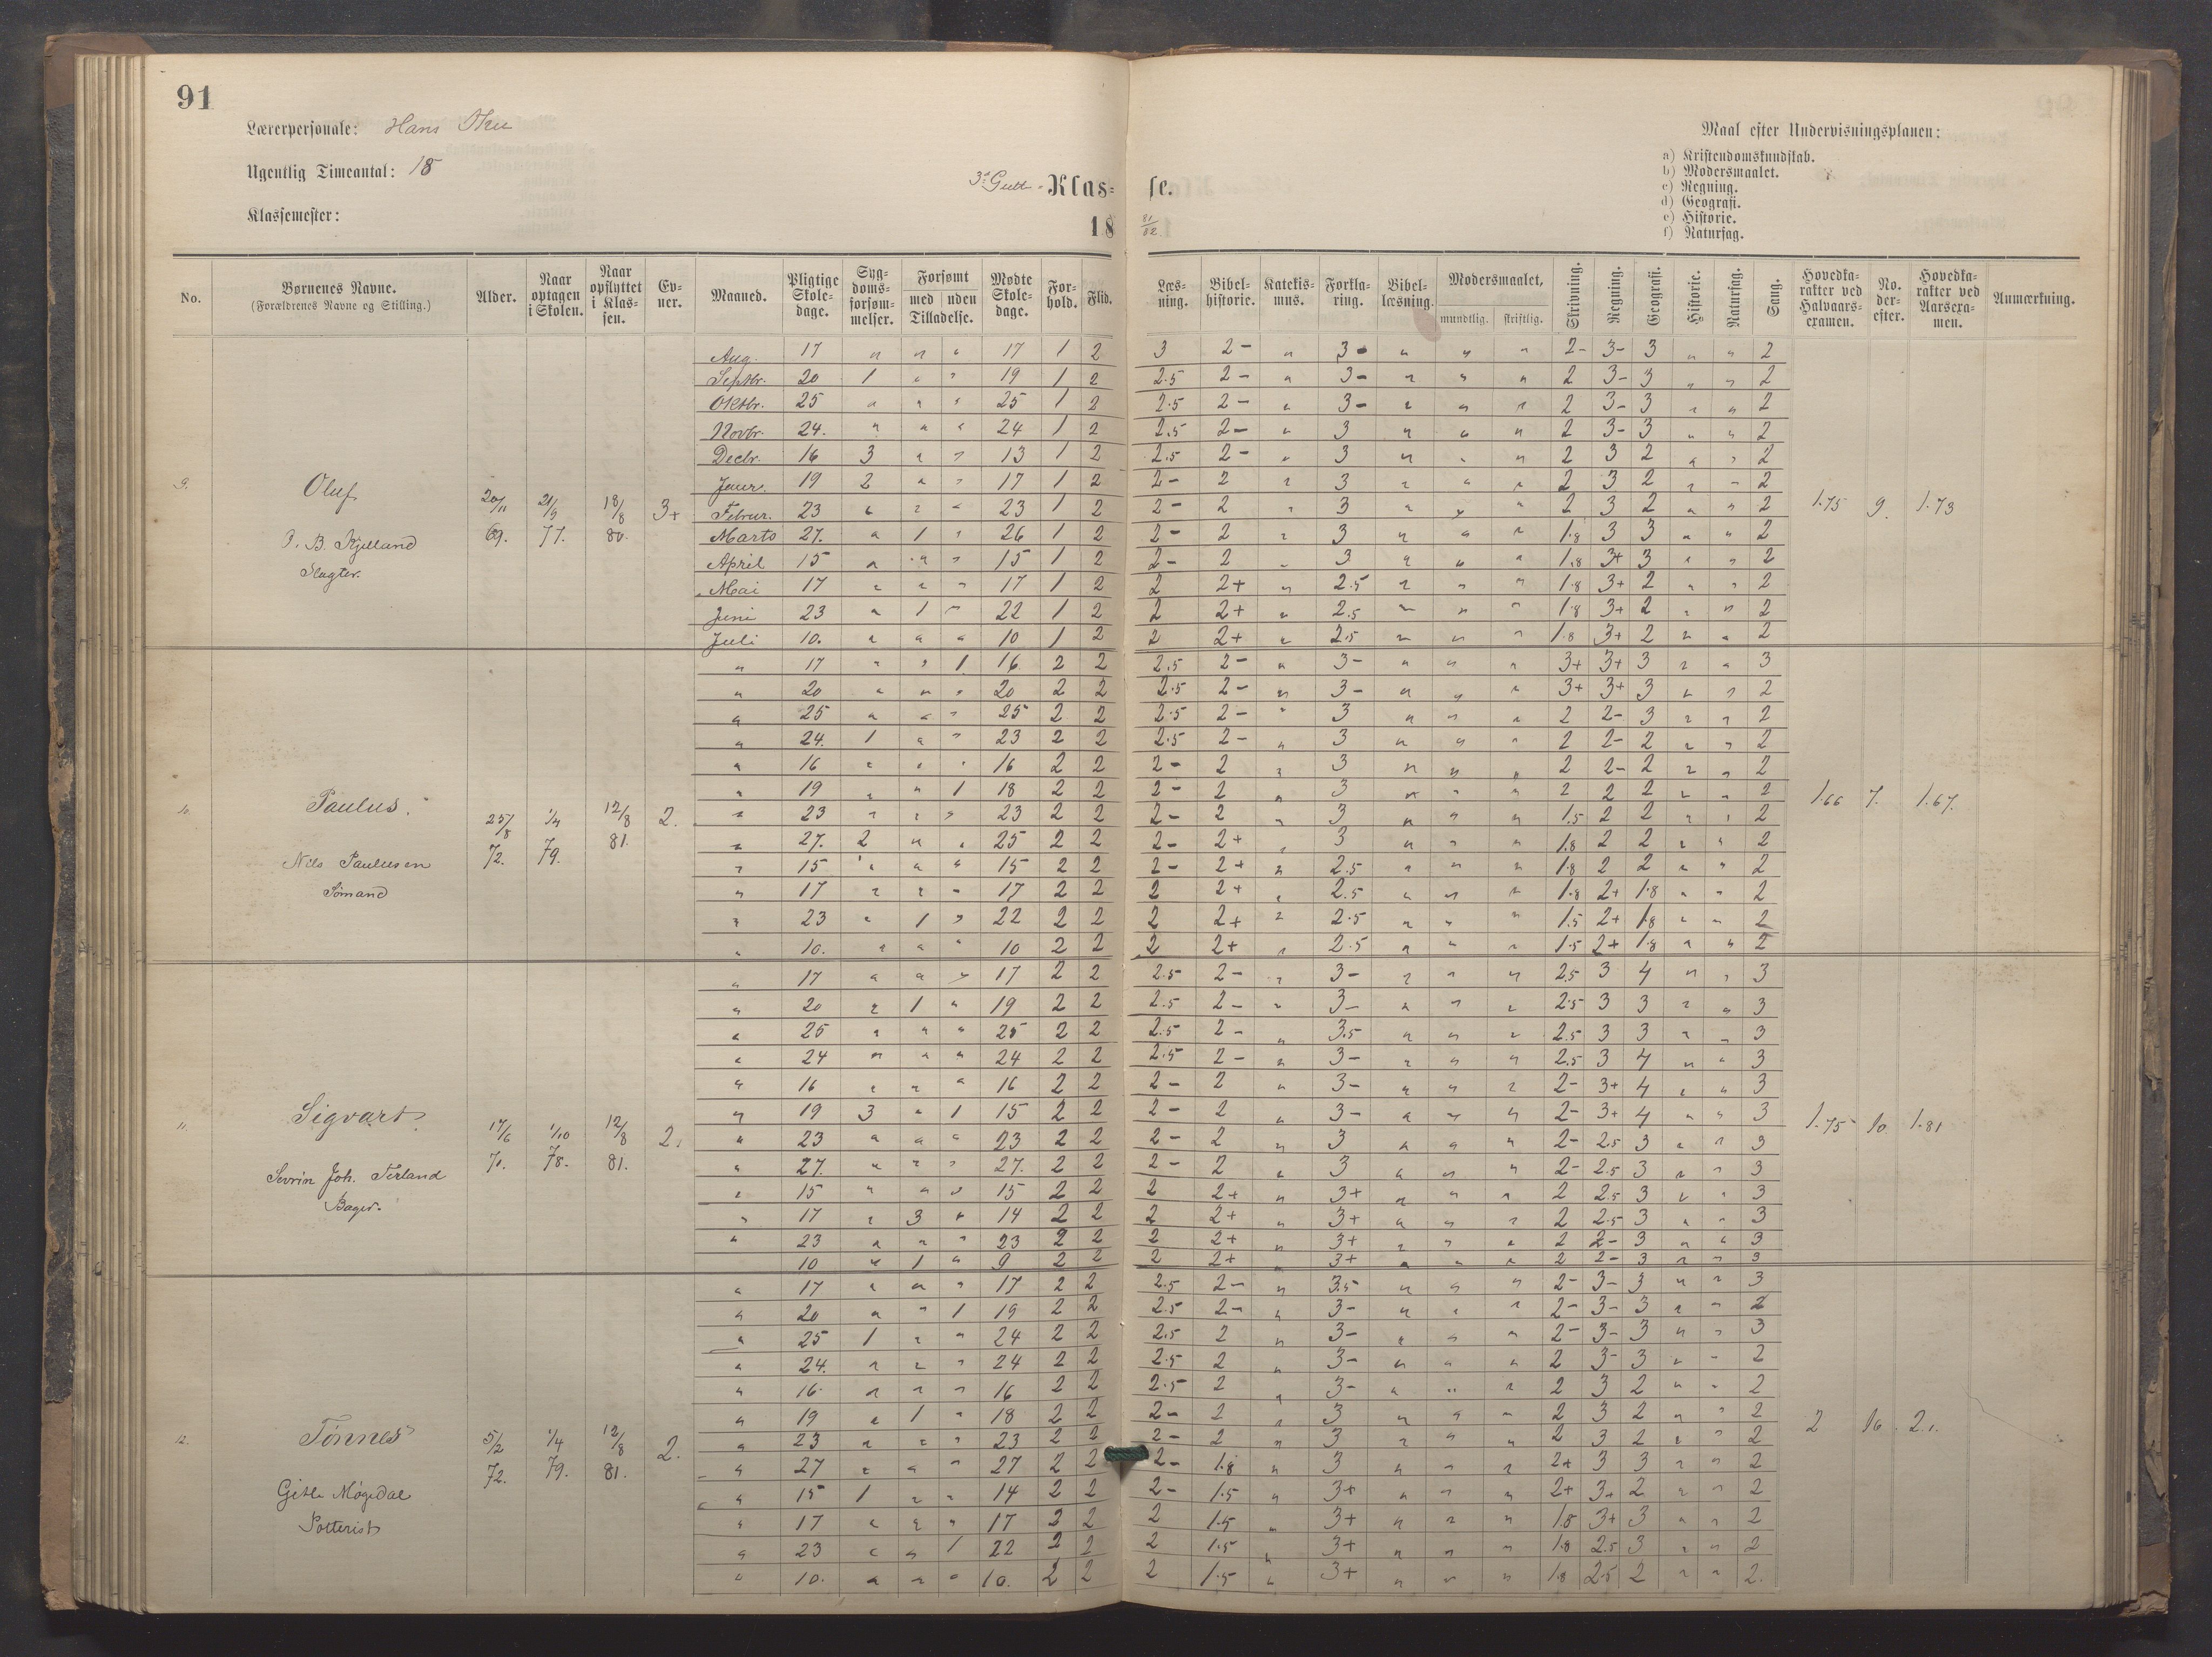 91
Lærerpersonale: Hans
Ugentlig Timeantal: 18
3d Gutt- Klas= se.
Klassemester:
18 81/82
Maal efter Undervisningsplanen:
a) Kristendomskundskab.
b) Modersmaalet.
c) Regning.
d) Geografi.
e) Historie.
f) Naturfag.
No. Børnenes Navne. (Forældrenes Navne og Stilling.) Alder. Naar optagen i Skolen. Naar opflyttet i Klas= sen. Ev= ner. Maaned. Pligtige Skole= dage. Syg= doms= forsøm= melser. Forsømt med uden Tilladelse. Mødte Skole= dage. For= hold. Flid. Læs= ning. Bibel= historie. Katekis= mus. Forkla= ring. Bibel= læsning. Modersmaalet, mundtlig. skriftlig. Skrivning. Regning. Geografi. Historie. Naturfag. Sang. Hovedka= rakter ved Halvaars= examen. No. der= efter. Hovedka= rakter ved Aarsexa= men. Anmærkning.
Aug. 17 " " " 17 1 2 3 2- " 3- " " " 2- 3- 3 " " 2
Septbr. 20 1 " " 19 1 2 2.5 2- " 3- " " " 2 3- 3 " " 2
Oktbr. 25 " " " 25 1 2 2.5 2- " 3- " " " 2 3- 3 " " 2
Novbr. 24. " " " 24 1 2 2.5 2- " 3 " " " 2 3- 3 " " 2
Decbr. 16 3 " " 13 1 2 2.5 2- " 3 " " " 2 3 2 " " 2
9. Oluf 20/11 69. 21/9 77. 18/8 80. 3+ 1.75 9. 1.73
Januar. 19 2 " " 17 1 2 2- 2 " 3 " " " 2 3 2 " " 2
Februar. 23 " " " 23 1 2 2- 2 " 3 " " " 2 3 2 " " 2
Marts 27. " 1 " 26 1 2 2- 2 " 3 " " " 1.8 3 3 " " 2
J. B. Kjelland
Slagter.
April 15 " " " 15 1 2 2- 2 " 3 " " " 1.8 3+ 3 " " 2
Mai 17 " " " 17 1 2 2 2+ " 2.5 " " " 1.8 3+ 2 " " 2
Juni 23 " 1 " 22 1 2 2 2+ " 2.5 " " " 1.8 3+ 2 " " 2
Juli 10. " " " 10 1 2 2 2+ " 2.5 " " " 1.8 3+ 2 " " 2
" 17 " " 1 16 2 2 2.5 2- " 3- " " " 3+ 3+ 3 " " 3
" 20 " " " 20 2 2 2.5 2- " 3- " " " 3+ 3+ 3 " " 2
" 25 " " " 25 2 2 2.5 2- " 3 " " " 2 2- 3 " " 2
" 24. 1 " " 23 2 2 2.5 2- " 3 " " " 2 2- 2 " " 2
" 16 " " " 16 2 2 2- 2 " 3 " " " 2 2- 2 " " 2
" 19 " " 1 18 2 2 2- 2 " 3 " " " 2 2 2 " " 2
10. Paulus. 25/8 72. 1/4 79. 12/8 81. 2. 1.66 7. 1.67.
" 23 " " " 23 2 2 2- 2 " 3 " " " 1.5 2 2 " " 2
" 27. 2 " " 25 2 2 2- 2+ " 3 " " " 1.8 2 2 " " 2
Nils Paulusen
Sømand
" 15 " " " 15 2 2 2- 2+ " 2.5 " " " 1.8 2 2 " " 2
" 17 " " " 17 2 2 2 2+ " 2.5 " " " 1.8 2+ 1.8 " " 2
" 23 " 1 " 22 2 2 2 2+ " 2.5 " " " 1.5 2+ 1.8 " " 2
" 10. " " " 10 2 2 2 2+ " 2.5 " " " 1.5 2+ 1.8 " " 2
" 17 " " " 17 2 2 2.5 2- " 3- " " " 2.5 3 4 " " 3
" 20 " 1 " 19 2 2 2.5 2- " 3- " " " 2.5 3 3 " " 3
" 25 " " " 25 2 2 2.5 2- " 3.5 " " " 2.5 3 3 " " 3
" 24 " " " 24 2 2 2.5 2- " 3- " " " 2.5 3 4 " " 3
" 16 " " " 16 2 2 2- 2 " 3- " " " 2- 3+ 4 " " 3
" 19 3 " 1 15 2 2 2- 2 " 3- " " " 2- 3+ 4 " " 3
11. Sigvart. 17/6 71. 1/10 78. 12/8 81. 2. 1.75 10. 1.81
" 23 " " " 23 2 2 2- 2 " 3 " " " 2- 2.5 3 " " 3
" 27. " " " 27. 2 2 2- 2 " 3 " " " 2- 2.5 3 " " 3
Sevrin Joh. Terland
Bager.
" 15 " " " 15 2 2 2 2+ " 3+ " " " 2 2.5 3 " " 3
" 17 " 3 " 14 2 2 2 2+ " 3+ " " " 2 2.5 3 " " 3
" 23 " " " 23 2 2 2 2+ " 3+ " " " 2 2- 3 " " 3
10 " 1 " 9 2 2 2 2+ " 3+ " " " 2 2- 3 " " 3
" 17 " " " 17 2 2 2.5 2- " 3.5 " " " 2- 3- 3 " " 3
" 20 " " 1 19 2 2 2.5 2- " 3- " " " 2- 3- 3 " " 2
" 25 1 " " 24 2 2 2.5 2 " 3- " " " 2- 3- 3 " " 3
" 24. " " " 24 2 2 2.5 2 " 3- " " " 2 3- 3 " " 2
" 16 " " " 16 2 2 2.5 2 " 3- " " " 2 3 2 " " 2
" 19 " 1 " 18 2 2 2- 2 " 3 " " " 2 3 2 " " 2
12. Tønnes 5/2 72. 1/4 79. 12/8 81. 2. 2 16. 2.1.
" 23 " " " 23 2 2 2- 2 " 3 " " " 2 3 2 " " 2
" 27 " " " 27 2 2 2- 1.8 " 3 " " " 2+ 3 3 " " 2
Gitle Møgedal
Potterist
" 15 1 " " 14 2 2 2- 1.5 " 3+ " " " 2+ 3+ 2 " " 2
" 17 " " " 17 2 2 2 1.5 " 3+ " " " 1.8 3+ 3 " " 2
" 23 " " 1 22 2 2 2 1.5 " 3+ " " " 1.8 2.5 3 " " 2
" 10. " " " 10. 2 2 2 1.5 " 3+ " " " 1.8 2.5 2 " " 2.